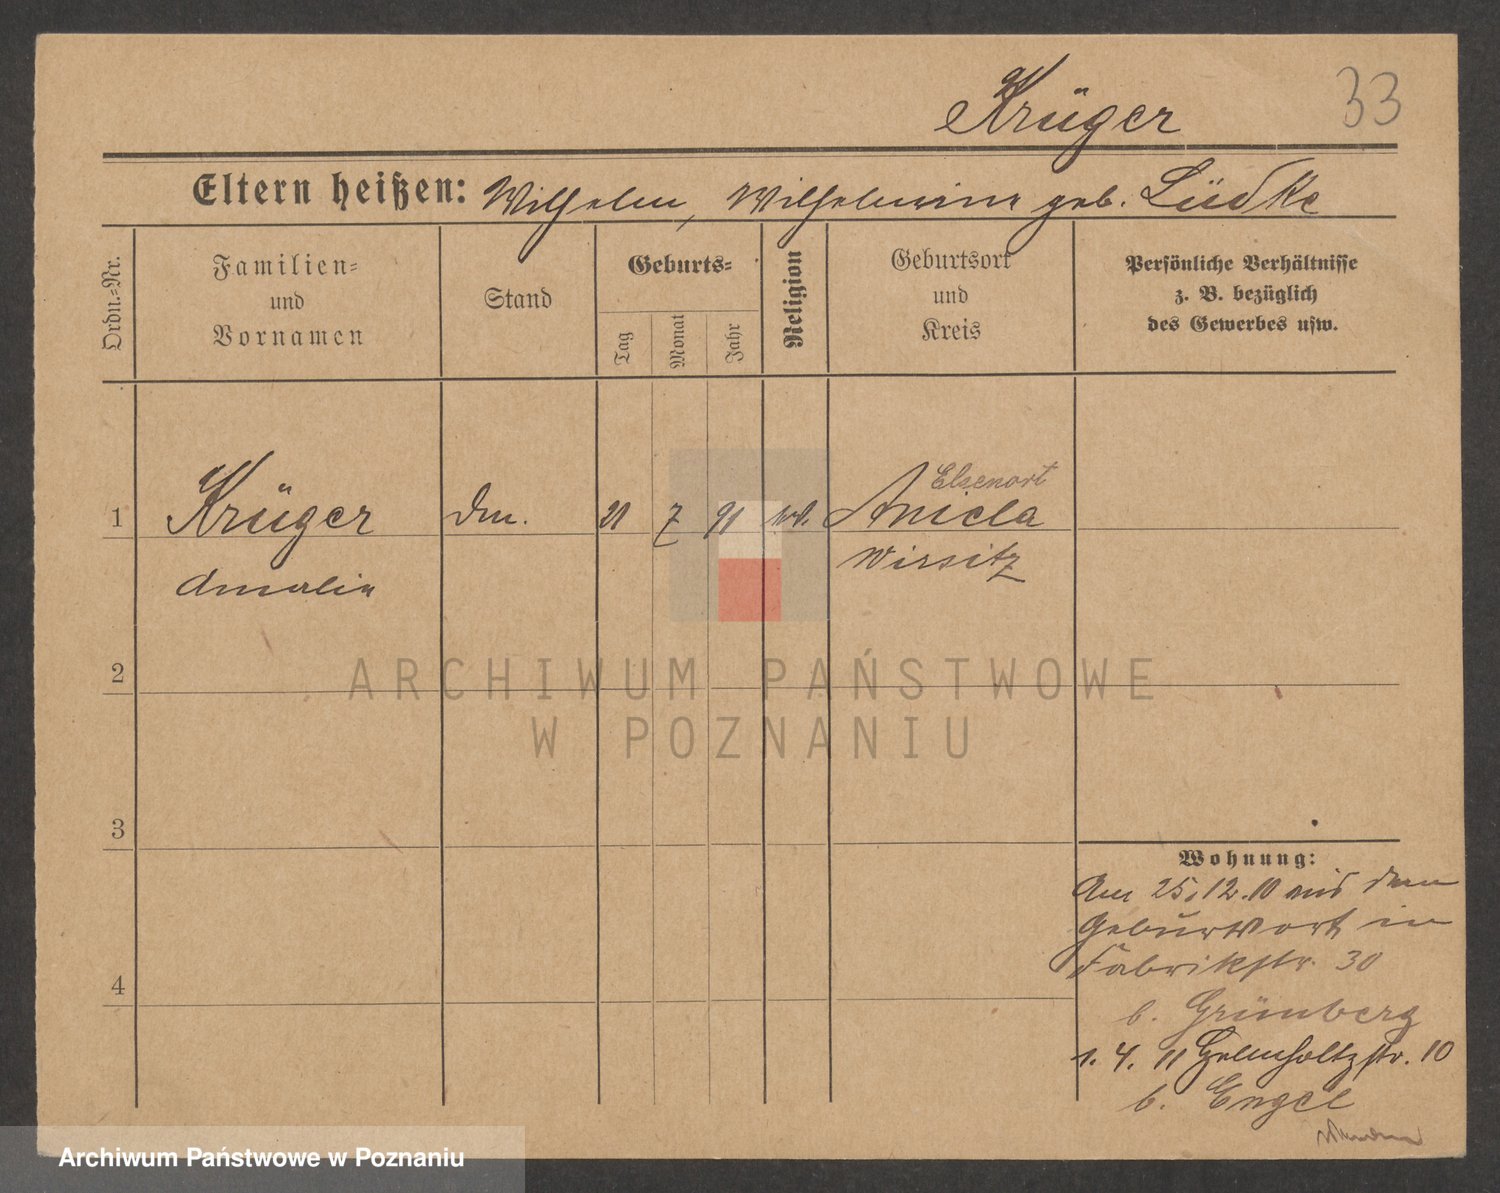 Krüger
33
Eltern heißen: Wilhelm, Wilhelmine geb. Lüdke
Ordn.-Nr.
Familien-
und
Vornamen
Stand
Geburts-
Tag
Monat
Jahr
Religion
Geburtsort
und
Kreis
Persönliche Verhältnisse
z. B. bezüglich
des Gewerbes usw.
1
Krüger
Amalie
Dm.
21
7
91
Elsenort
Aniela
Wirsitz
2
3
4
Wohnung:
Am 25.12.10 aus dem
Geburtsort in
Fabrikstr. 30
b. Grünberg
1. 4. 11 Helmholtzstr. 10
b. Engel
ARCHIWUM PAŃSTWOWE
W POZNANIU
Archiwum Państwowe w Poznaniu